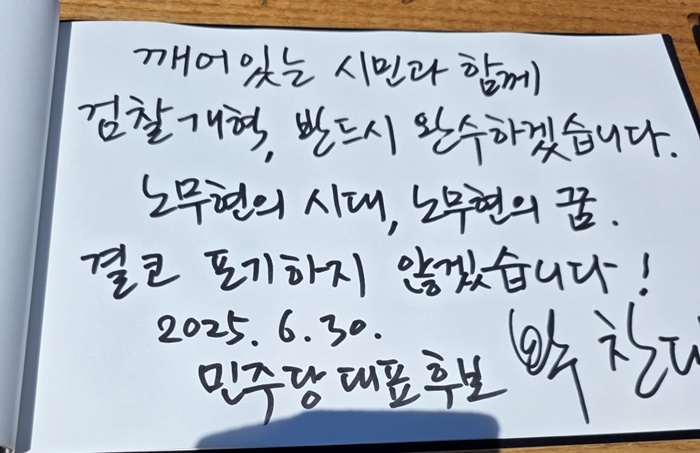 깨어있는 시민과 함께
검찰개혁, 반드시 완수하겠습니다.
노무현의 시대, 노무현의 꿈.
결코 포기하지 않겠습니다!
2025. 6. 30.
민주당 대표 후보 박찬대